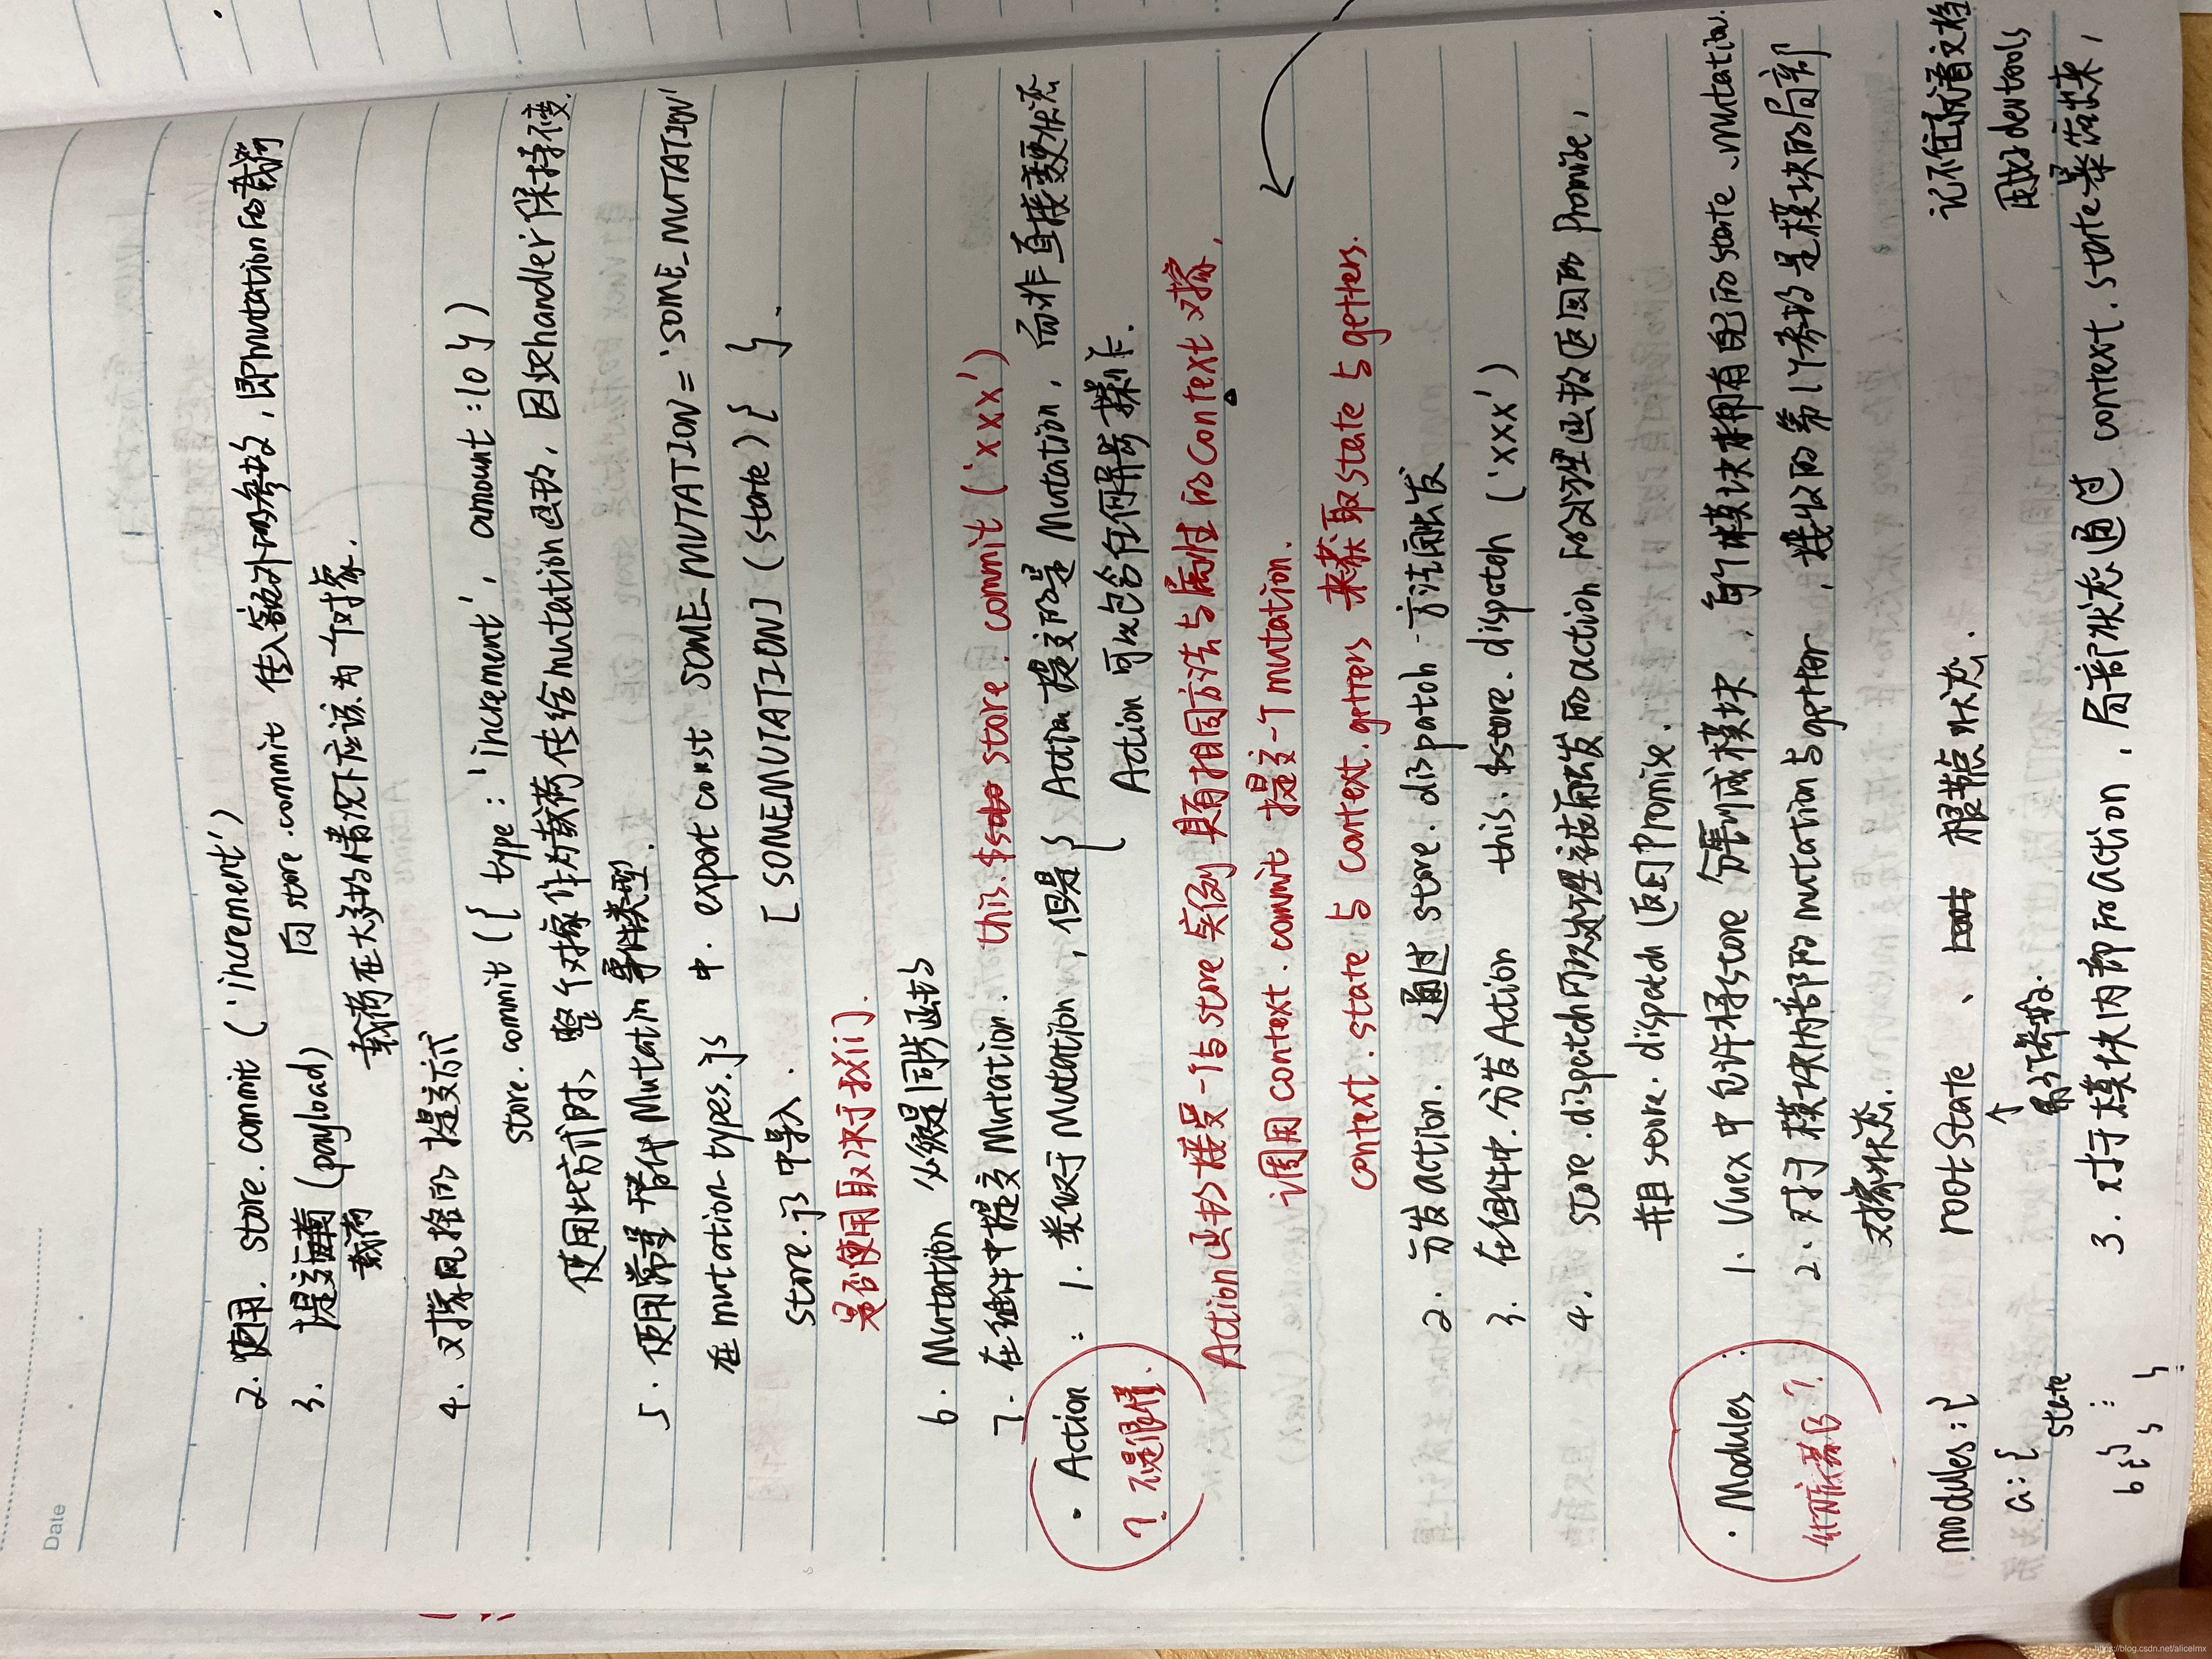 Date
2. 使用. store.commit('increment')
3. 提交 (payload) 向 store.commit 传入额外的参数, 即mutation的载荷
载荷 载荷在大多数情况下应该为一个对象.
4. 对象风格的提交方式
store.commit({ type: 'increment', amount: 10 })
使用此方式时, 整个对象作为载荷传给mutation函数, 因此handler保持不变.
5. 使用常量替代 Mutation 事件类型.
在 mutation-types.js 中. export const SOME_MUTATION = 'SOME_MUTATION'
store.js 中导入. [SOME_MUTATION] (state) { }.
是否使用取决于我们.
6. Mutation 必须是同步函数
7. 在组件中提交Mutation. this.$store.commit('xxx')
• Action : 1. 类似于Mutation, 但是 { Action 提交的是 Mutation, 而非直接变更状态
? 不是很懂. Action 可以包含任何异步操作.
Action函数接受一个与store实例具有相同方法与属性的context对象,
调用context.commit 提交一个mutation.
context.state 与 context.getters 来获取state与getters.
2. 分发action. 通过 store.dispatch 方法触发
3. 在组件中.分发Action this.$store.dispatch('xxx')
4. store.dispatch可以处理被触发的action的处理函数返回的 Promise,
并且 store.dispatch 返回Promise.
• Modules : 1. Vuex 中允许将store 分割成模块, 每个模块拥有自己的state、mutation.
2. 对于模块内部的mutation与getter, 接收的第1个参数是模块的局部
对象状态.
modules:{ rootState 、 根节点状态. 记不住就看文档
a:{ ↑ 用好devtools
state
b:{} 3. 对于模块内部的action, 局部状态通过 context.state暴露出来,
⋮ } }
https://blog.csdn.net/alicelmx